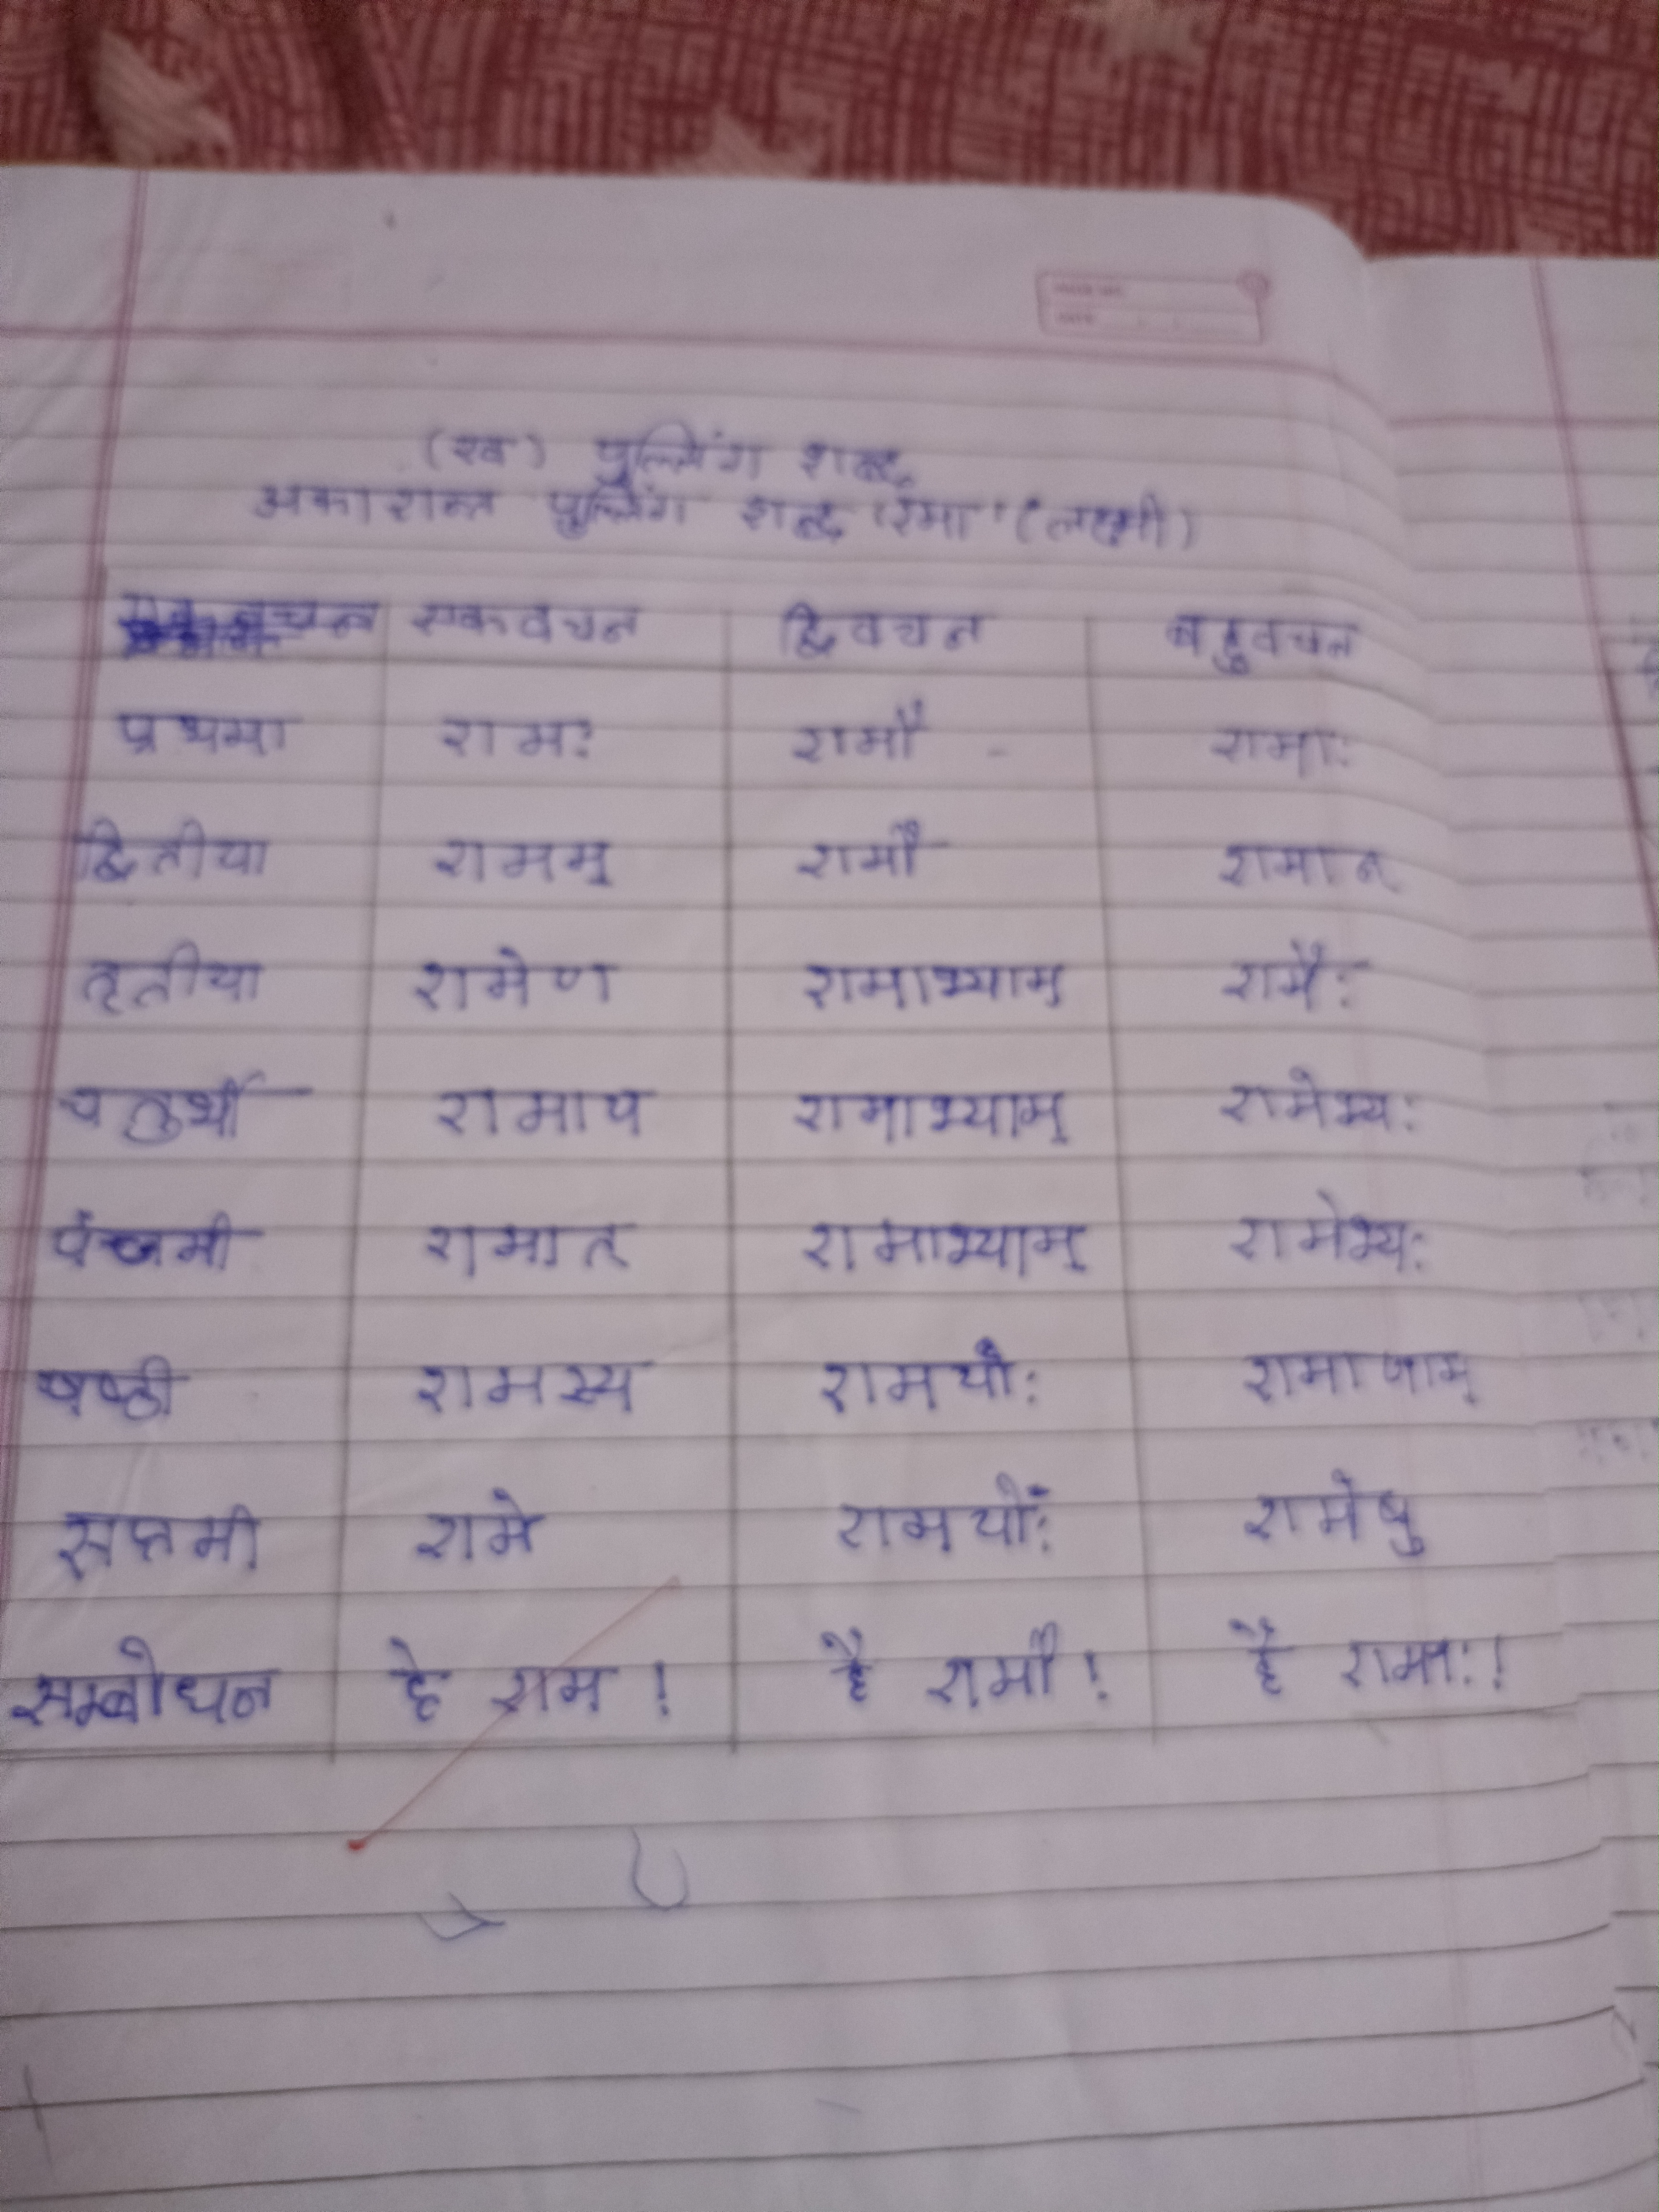 (ख) पुल्लिंग शब्द
अकारान्त पुल्लिंग शब्द 'रमा' (लक्ष्मी)
एकवचन द्विवचन बहुवचन
प्रथमा रामः रामौ रामाः
द्वितीया रामम् रामौ रामान्
तृतीया रामेण रामाभ्याम् रामैः
चतुर्थी रामाय रामाभ्याम् रामेभ्यः
पंचमी रामात् रामाभ्याम् रामेभ्यः
षष्ठी रामस्य रामयोः रामाणाम्
सप्तमी रामे रामयोः रामेषु
सम्बोधन हे राम ! है रामौ ! है रामाः !